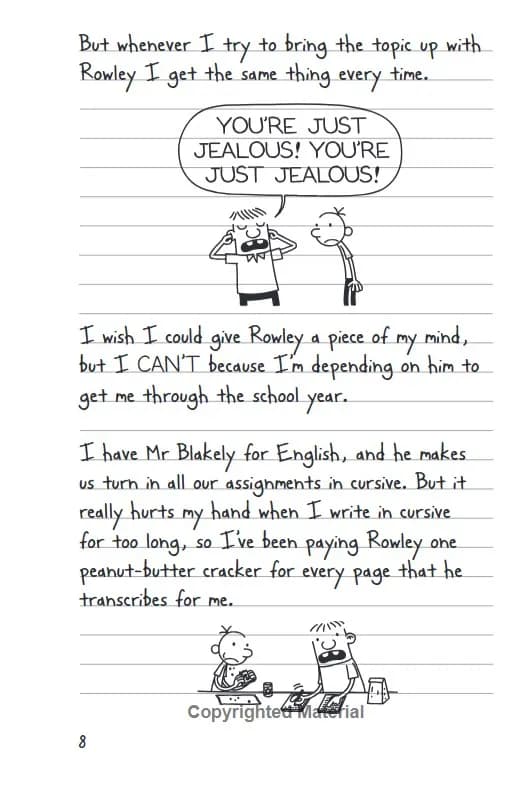 But whenever I try to bring the topic up with
Rowley I get the same thing every time.
YOU'RE JUST
JEALOUS! YOU'RE
JUST JEALOUS!
I wish I could give Rowley a piece of my mind,
but I CAN'T because I'm depending on him to
get me through the school year.
I have Mr Blakely for English, and he makes
us turn in all our assignments in cursive. But it
really hurts my hand when I write in cursive
for too long, so I've been paying Rowley one
peanut-butter cracker for every page that he
transcribes for me.
Copyrighted Material
8